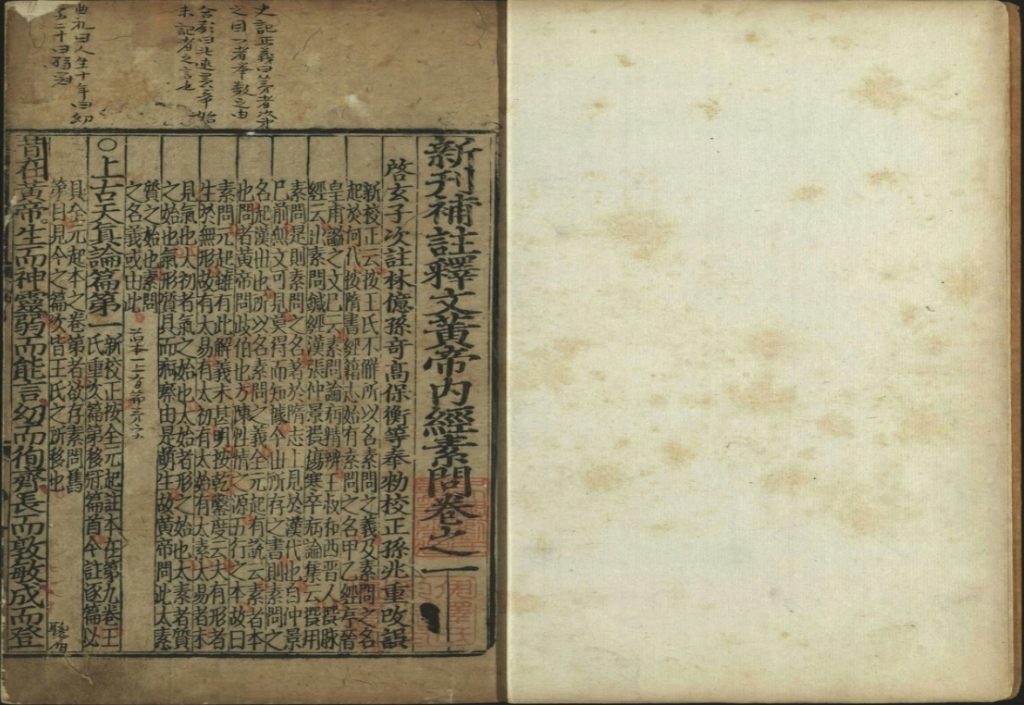 新刊補註釋文黃帝內經素問卷之一
啓玄子次註林億孫奇高保衡等奉勑校正孫兆重改誤
新校正云按王氏不解所以名素問之義及素問之名
起於何代按隋書經籍志始有素問之名甲乙經序晉
皇甫謐之文已云素問論病精辨王叔和西晉人撰脉
經云出素問鍼經漢張仲景撰傷寒卒病論集云撰用
素問是則素問之名著於隋志上見於漢代也自仲景
已前無文可見莫得而知據今世所存之書則素問之
名起漢世也所以名素問之義全元起有說云素者本
也問者黃帝問岐伯也方陳性情之源五行之本故曰
素問元起雖有此解義未甚明按乾鑿度云夫有形者
生於無形故有太易有太初有太始有太素太易者未
見氣也太初者氣之始也太始者形之始也太素者質
之始也氣形質具而痾瘵由是萌生故黃帝問此太素
質之始也素問
之名義或由此
○上古天真論篇第一
新校正按全元起註本在第九卷王
氏重次篇第移冠篇首今註逐篇必
具全元起本之卷第者欲存素問舊
第目見今之篇次皆王氏之所移也
昔在黃帝生而神靈弱而能言幼而徇齊長而敦敏成而登
史記正義曰
之目一者奉數之由
未記者之言也
曲礼曰人生十年曰幼
二十曰弱冠